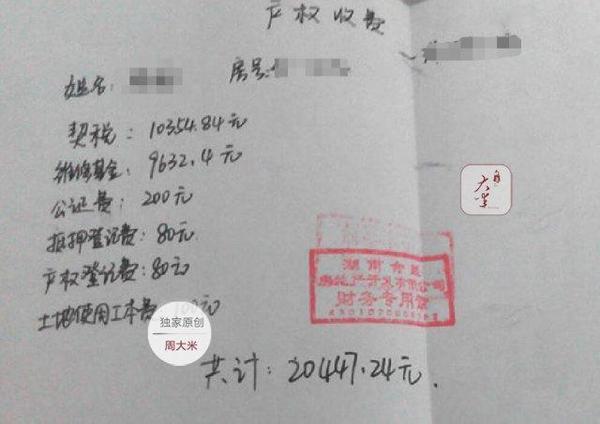 产权收费
姓名：
房号：
契税：10354.84元
维修基金：9632.4元
公证费：200元
抵押登记费：80元
产权登记费：80元
土地使用工本费 100元
共计：20447.24元.
湖南
房地产开发有限公司
财务专用章
独家原创
周大米